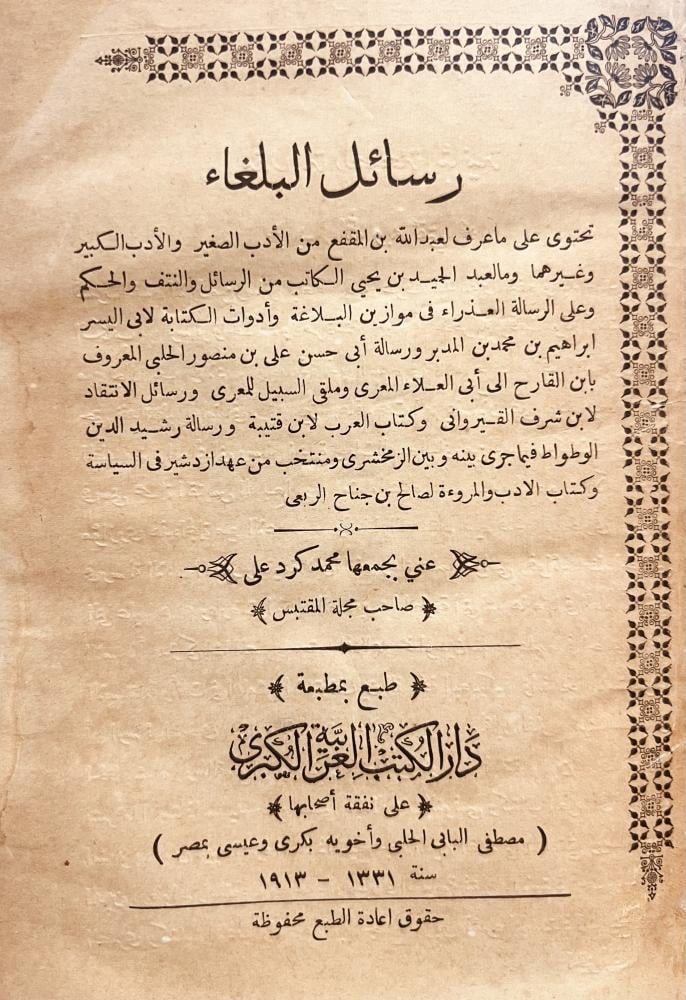 رسائل البلغاء
تحتوى على ماعرف لعبد الله بن المقفع من الأدب الصغير والأدب الكبير
وغيرهما ومالعبد الحميد بن يحيى الكاتب من الرسائل والنتف والحكم
وعلى الرسالة العذراء فى موازين البلاغة وأدوات الكتابة لابى اليسر
ابراهيم بن محمد بن المدبر ورسالة أبى حسن على بن منصور الحلبى المعروف
بابن القارح الى أبى العلاء المعرى وملقى السبيل للمعرى ورسائل الانتقاد
لابن شرف القيروانى وكتاب العرب لابن قتيبة ورسالة رشيد الدين
الوطواط فيما جرى بينه وبين الزمخشرى ومنتخب من عهد ازدشير فى السياسة
وكتاب الادب والمروءة لصالح بن جناح الربعى
عني بجمعها محمد كرد على
صاحب مجلة المقتبس
طبع بمطبعة
دار الكتب العربية الكبرى
على نفقة أصحابها
( مصطفى البابى الحلبى وأخويه بكرى وعيسى بمصر )
سنة ١٣٣١ – ١٩١٣
حقوق اعادة الطبع محفوظة